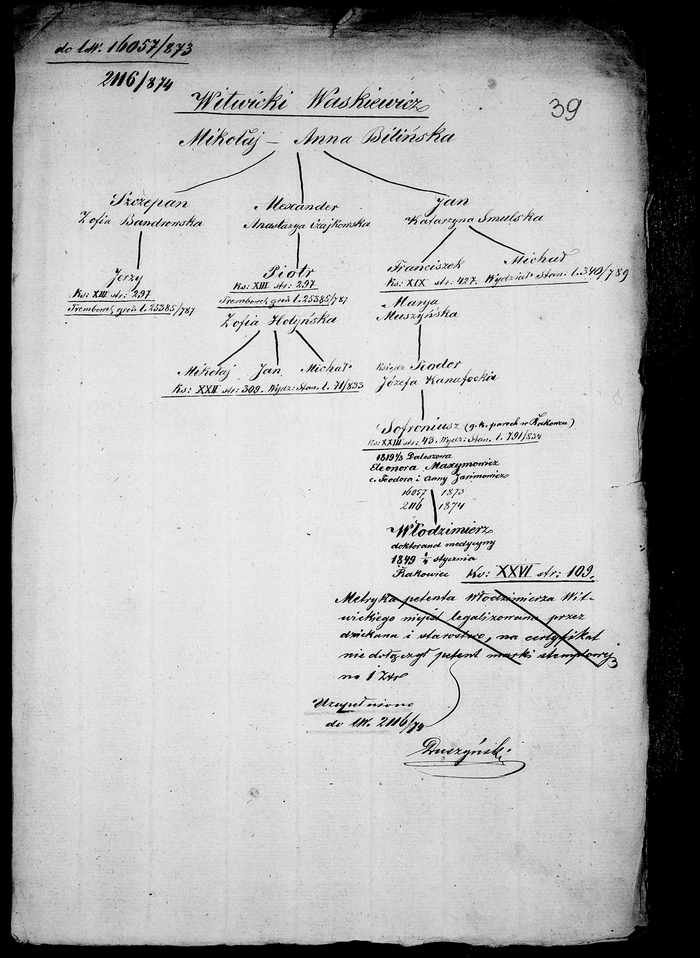 do LW. 16057/873
2116/874
39
Witwicki Waskiewicz
Mikołaj — Anna Bilińska
Szczepan
Zofia Bandrowska
Alexander
Anastazya Czajkowska
Jan
Katarzyna Smulska
Jerzy
Ks: XIII str: 297
Trembowel: grod l. 25385/787
Piotr
Ks: XIII str: 297.
Trembowel: grod l. 25385/787
Zofia Hołyńska
Franciszek
Ks: XIX str: 427.
Michał
Wydział Stan. l. 349/789
Marya
Muszyńska
Mikołaj Jan Michał
Ks: XXII str: 309. Wydz: Stan. l. 71/833
Ksiądz Teodor
Józefa
Sofroniusz (g. k. paroch w Rakowcu)
Ks: XXIII str: 43. Wydz: Stan. l. 791/834
1819 Daleszowa
Eleonora Maxymowicz
c. Teodora i Anny Jarimowicz
16057 / 1873
2116 / 1874
Włodzimierz
doktorand medycyny
1849 stycznia
Rakowiec Ks: XXVI str: 109.
Metryka petenta Włodzimierza Wit-
wickiego niejest legalizowana przez
dziekana i starostwo, na certyfikat
nie dołączył petent marki stemplowej
na 1 Złr
Uzupełniono
do LW. 2116/74
Duszyński